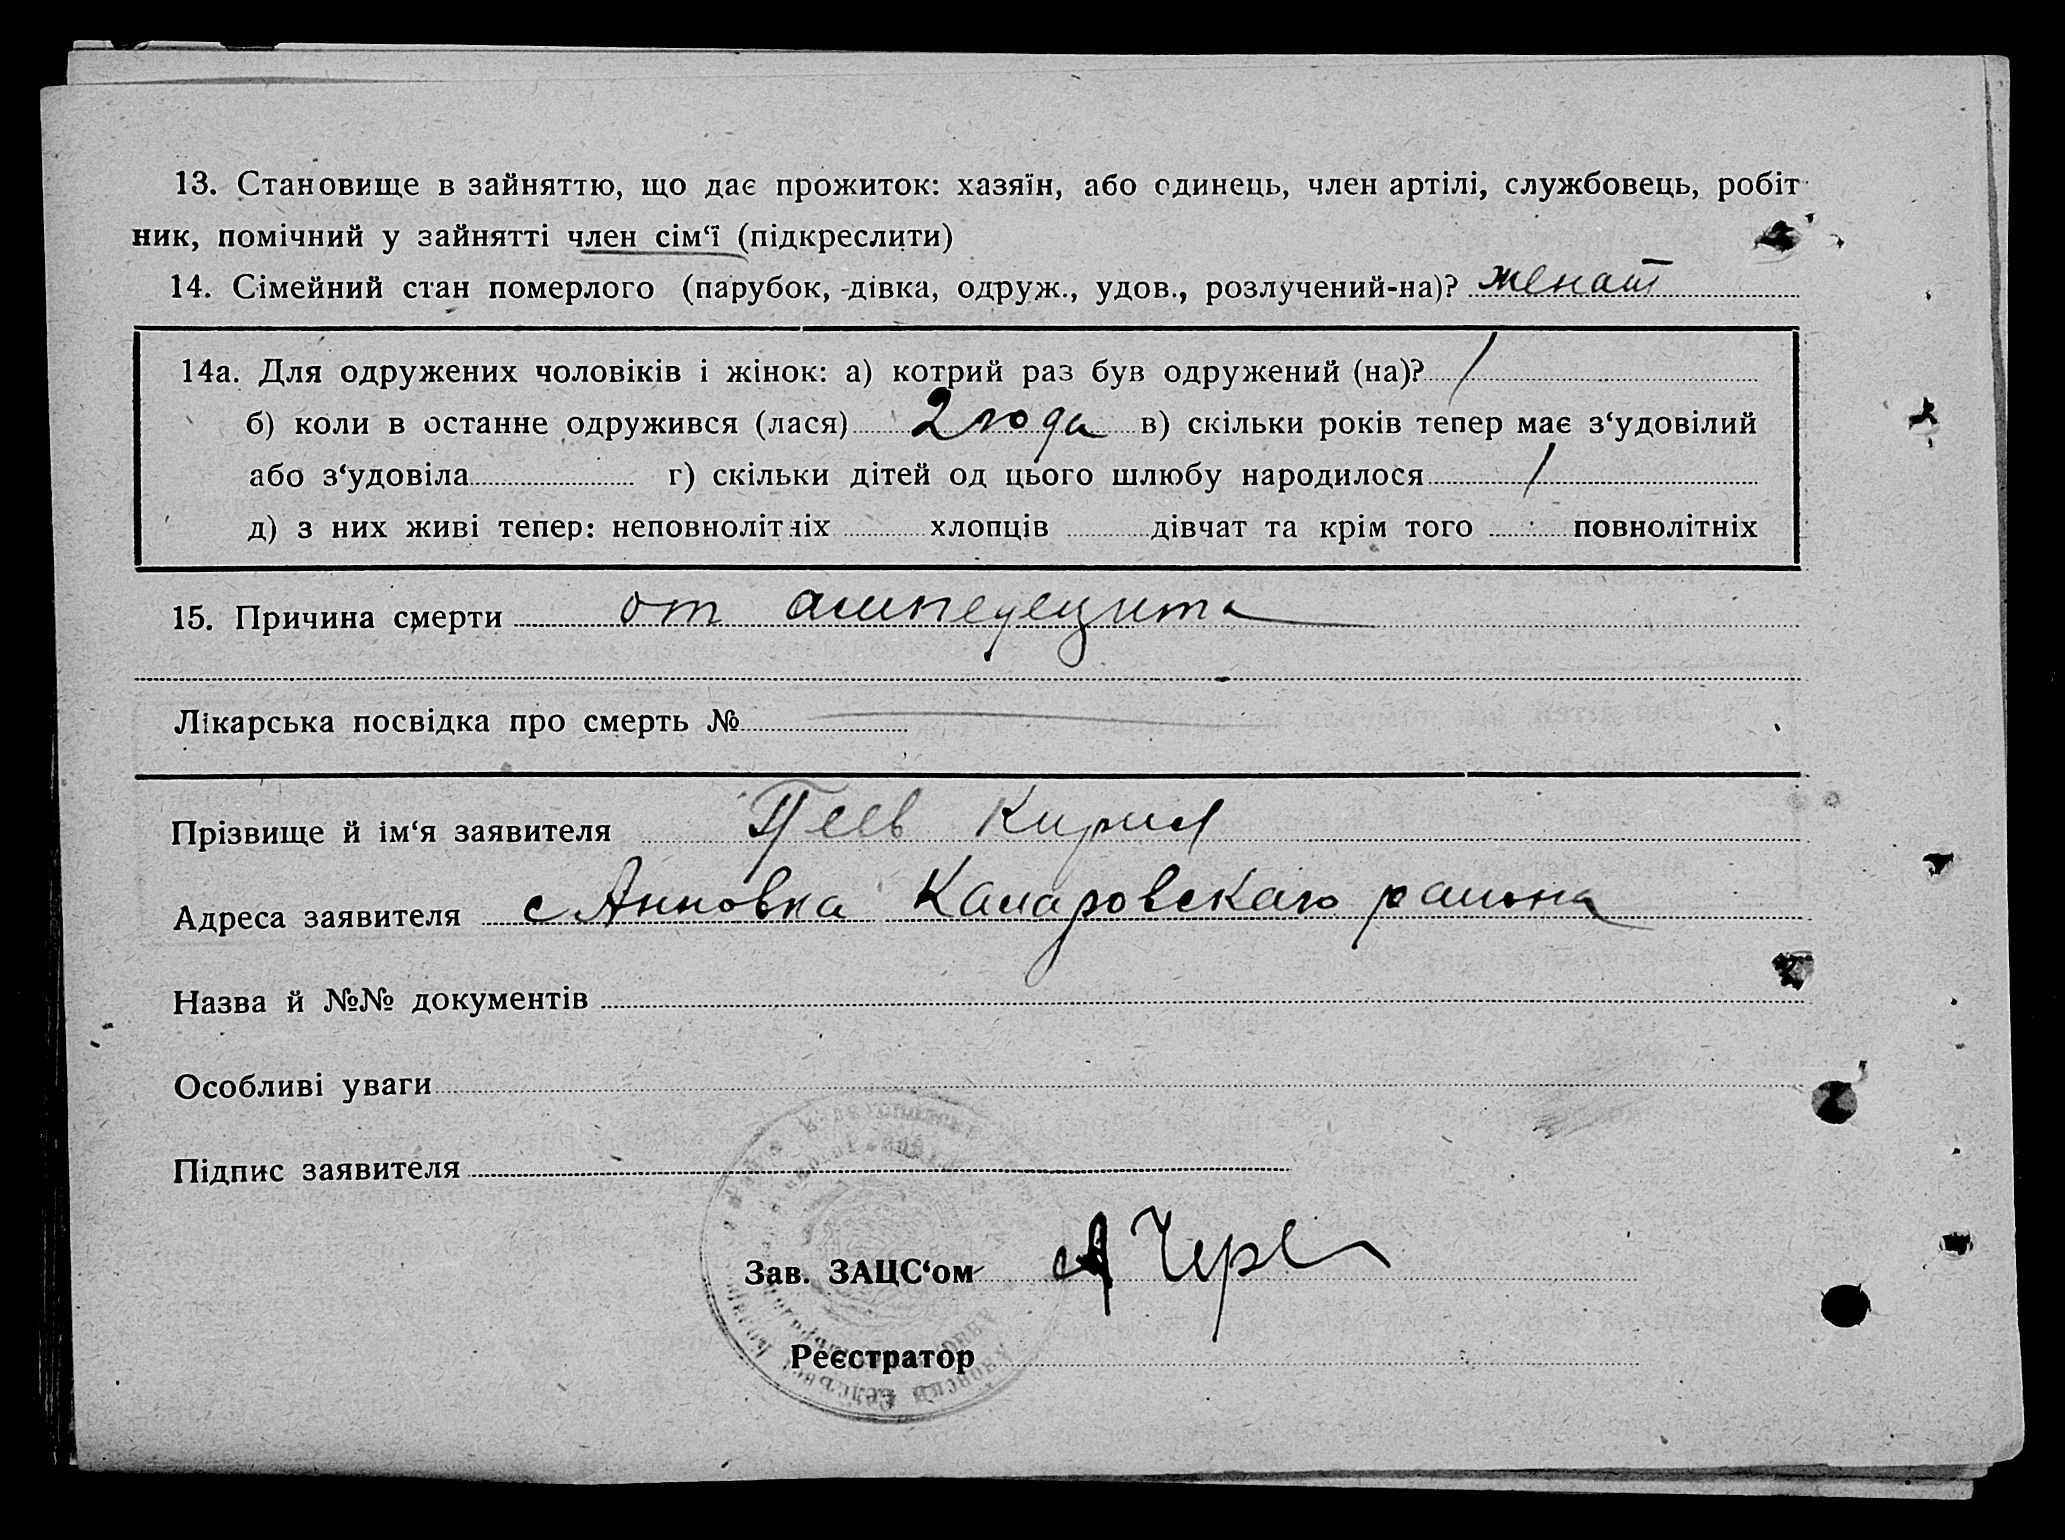 13. Становище в зайняттю, що дає прожиток: хазяїн, або одинець, член артілі, службовець, робіт
ник, помічний у зайнятті член сім‘ї (підкреслити)
14. Сімейний стан померлого (парубок, дівка, одруж., удов., розлучений-на)? женат
14а. Для одружених чоловіків і жінок: а) котрий раз був одружений (на)? 1
б) коли в останне одружився (лася) 2 года в) скільки років тепер має з‘удовілий
або з‘удовіла г) скільки дітей од цього шлюбу народилося 1
д) з них живі тепер: неповнолітніх хлопців дівчат та крім того повнолітніх
15. Причина смерти от аппедецита
Лікарська посвідка про смерть №
Прізвище й ім‘я заявителя Кирил
Адреса заявителя с Анновка района
Назва й №№ документів
Особливі уваги
Підпис заявителя
Зав. ЗАЦС‘ом
Реєстратор